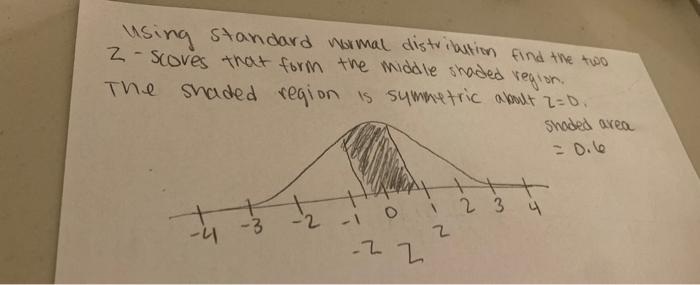 using standard normal distribution find the two
Z-scores that form the middle shaded region.
The shaded region is symmetric about z=0.
shaded area
= 0.6
-4 -3 -2 -1 0 1 2 3 4
-z z z